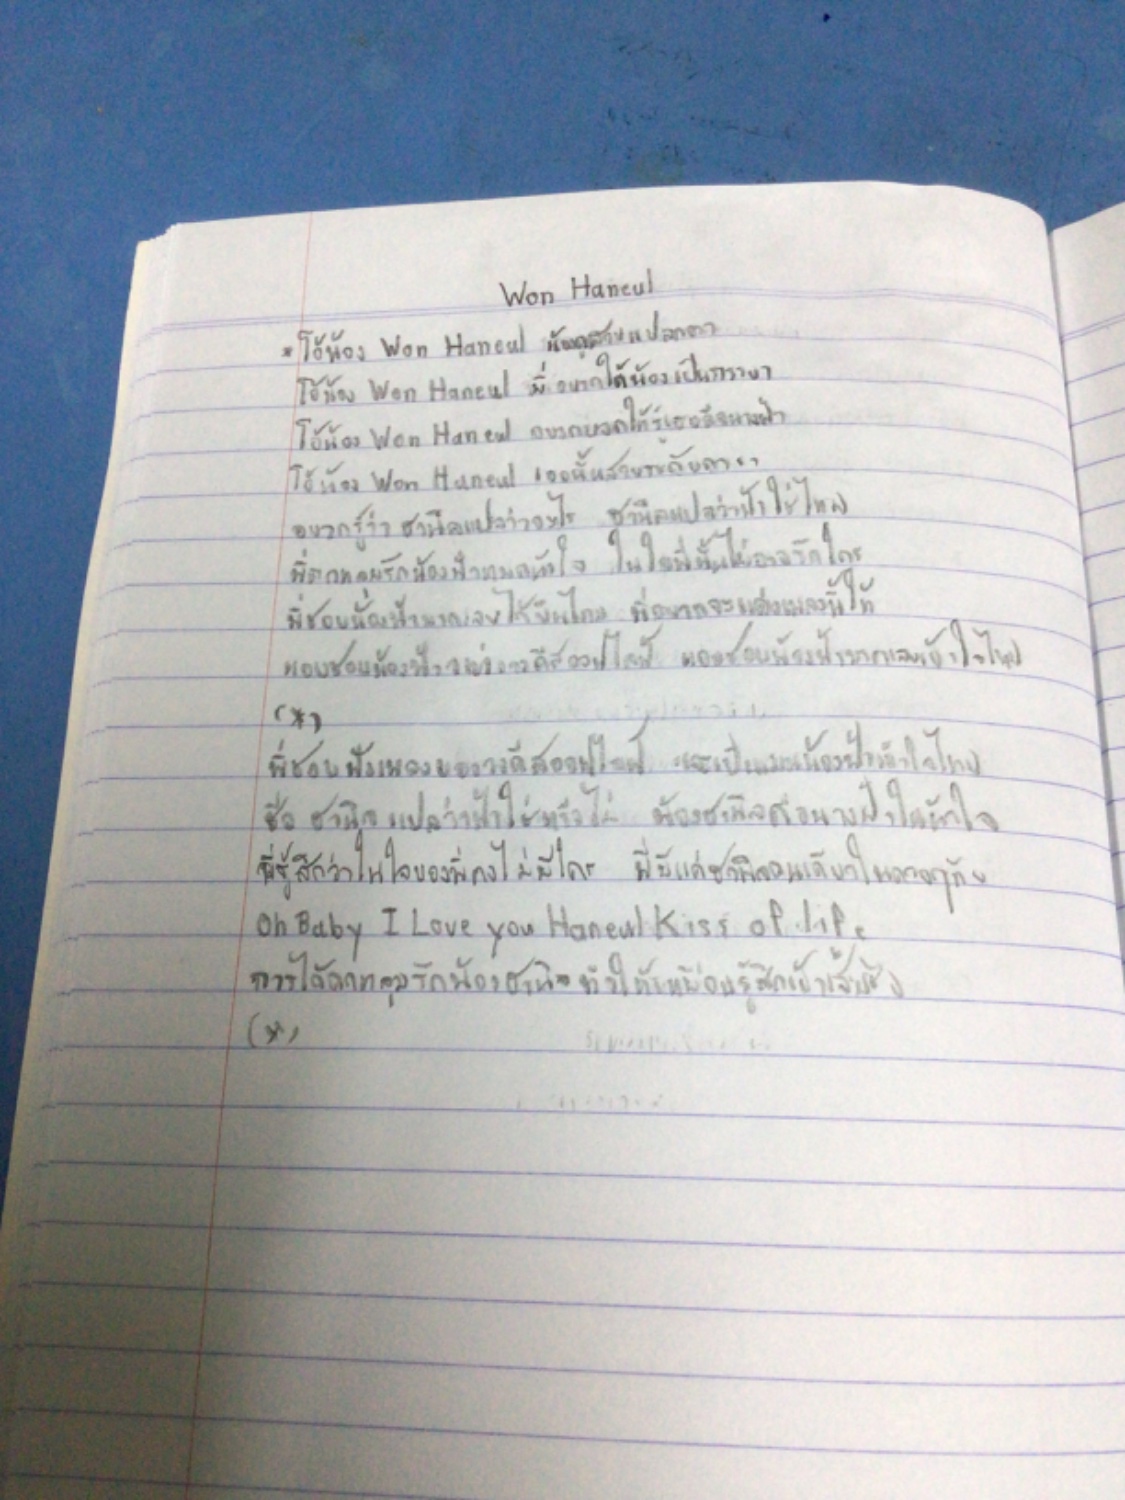 Won Haneul
* โอ้น้อง Won Haneul น้องดูสวยแปลกตา
โอ้น้อง Won Haneul พี่อยากให้น้องเป็นภรรยา
โอ้น้อง Won Haneul อยากบอกให้รู้เธอคือนางฟ้า
โอ้น้อง Won Haneul เธอนั้นสวยระดับดารา
อยากรู้ว่า ฮานึลแปลว่าอะไร ฮานึลแปลว่าฟ้าใช่ไหม
พี่ตกหลุมรักน้องฟ้าหมดหัวใจ ในใจพี่นั้นไม่อาจรักใคร
พี่ชอบน้องฟ้ามากเลยได้ยินไหม พี่อยากจะแต่งเพลงนี้ให้
แอบชอบน้องฟ้าแห่งวงคิสออฟไลฟ์ แอบชอบน้องฟ้ามากเลยเข้าใจไหม
(*)
พี่ชอบฟังเพลงของวงคิสออฟไลฟ์ และเป็นแฟนน้องฟ้าเข้าใจไหม
ชื่อ ฮานึล แปลว่าฟ้าใช่หรือไม่ น้องฮานึลคือนางฟ้าในหัวใจ
พี่รู้สึกว่าในใจของพี่คงไม่มีใคร พี่มีแค่ฮานึลคนเดียวในดวงฤทัย
Oh Baby I Love you Haneul Kiss of life
การได้ตกหลุมรักน้องฮานึล ทำให้เหมือนรู้สึกเข้าเส้นชัย
(*)